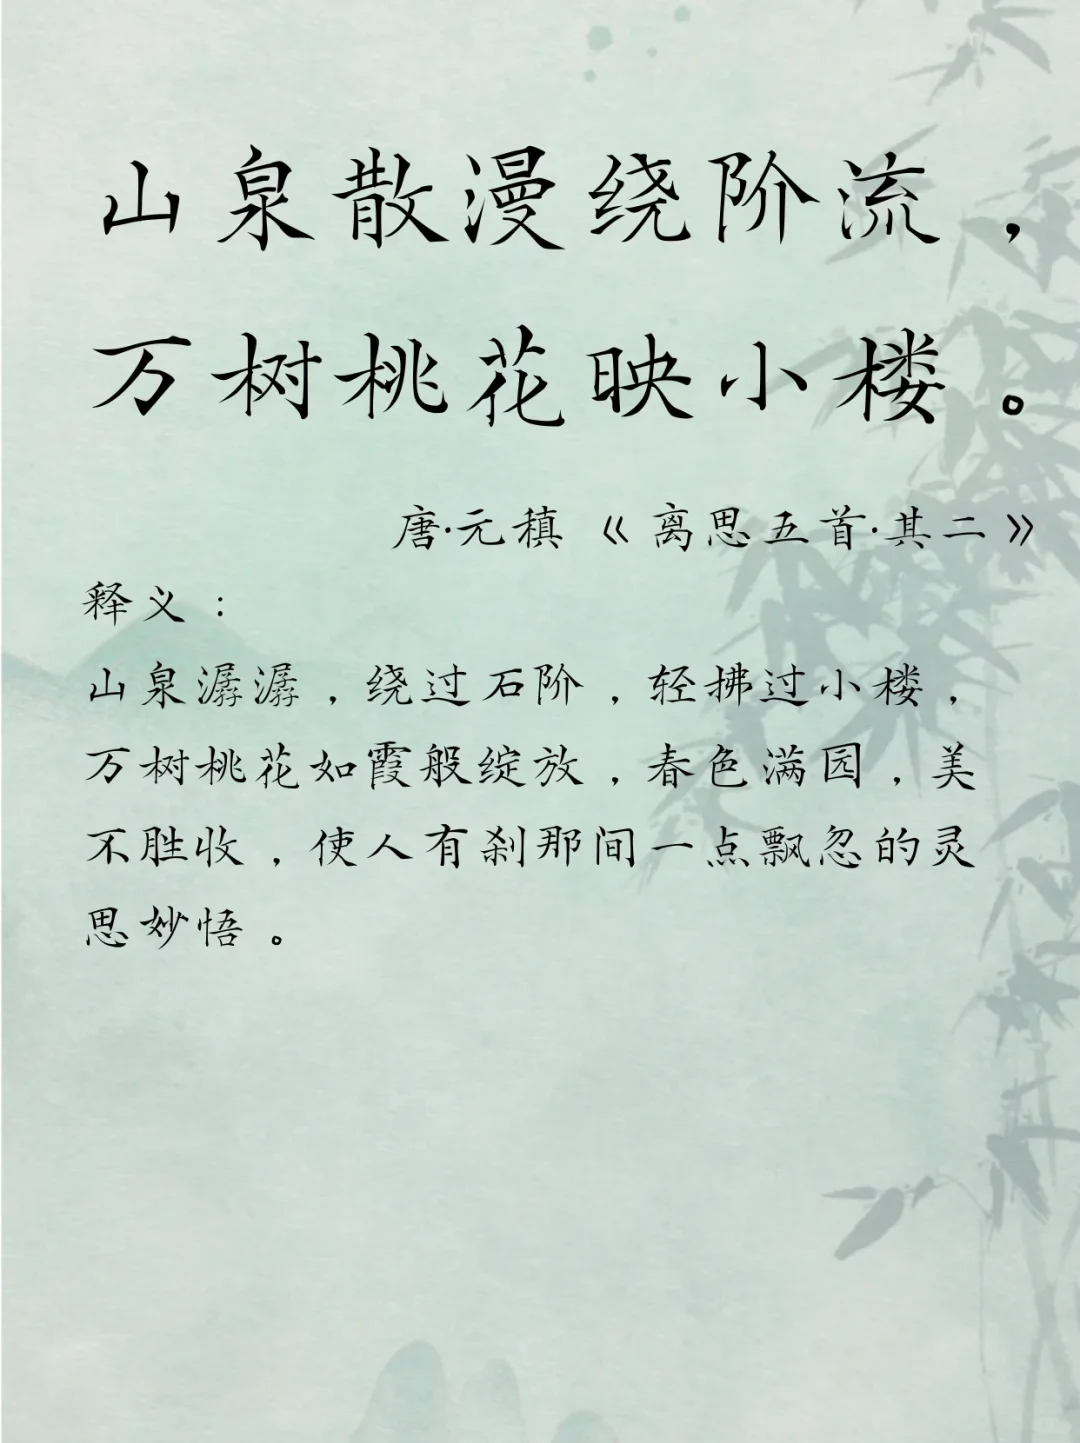 山泉散漫绕阶流，
万树桃花映小楼。
唐·元稹《离思五首·其二》
释义：
山泉潺潺，绕过石阶，轻拂过小楼，
万树桃花如霞般绽放，春色满园，美
不胜收，使人有刹那间一点飘忽的灵
思妙悟。